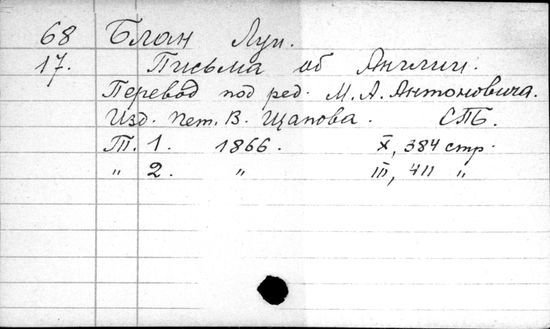 68 Блан Луи.
17. Письма об Англии.
Перевод под ред. М. А. Антоновича.
Изд. Пет. В. Щапова. СПБ.
Т. 1. 1866. X, 384 стр.
" 2. " III, 411 "